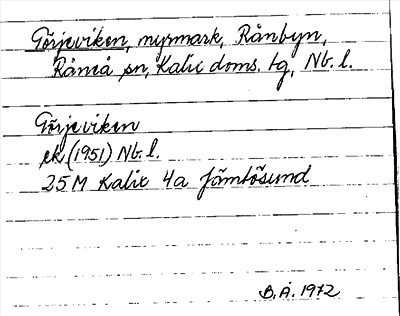 Törjeviken, myrmark, Rånbyn,
Råneå sn, Kalix doms. tg, Nb. l.
Törjeviken
ek (1951) Nb. l.
25 M Kalix 4a Jämtösund
B.Å. 1972